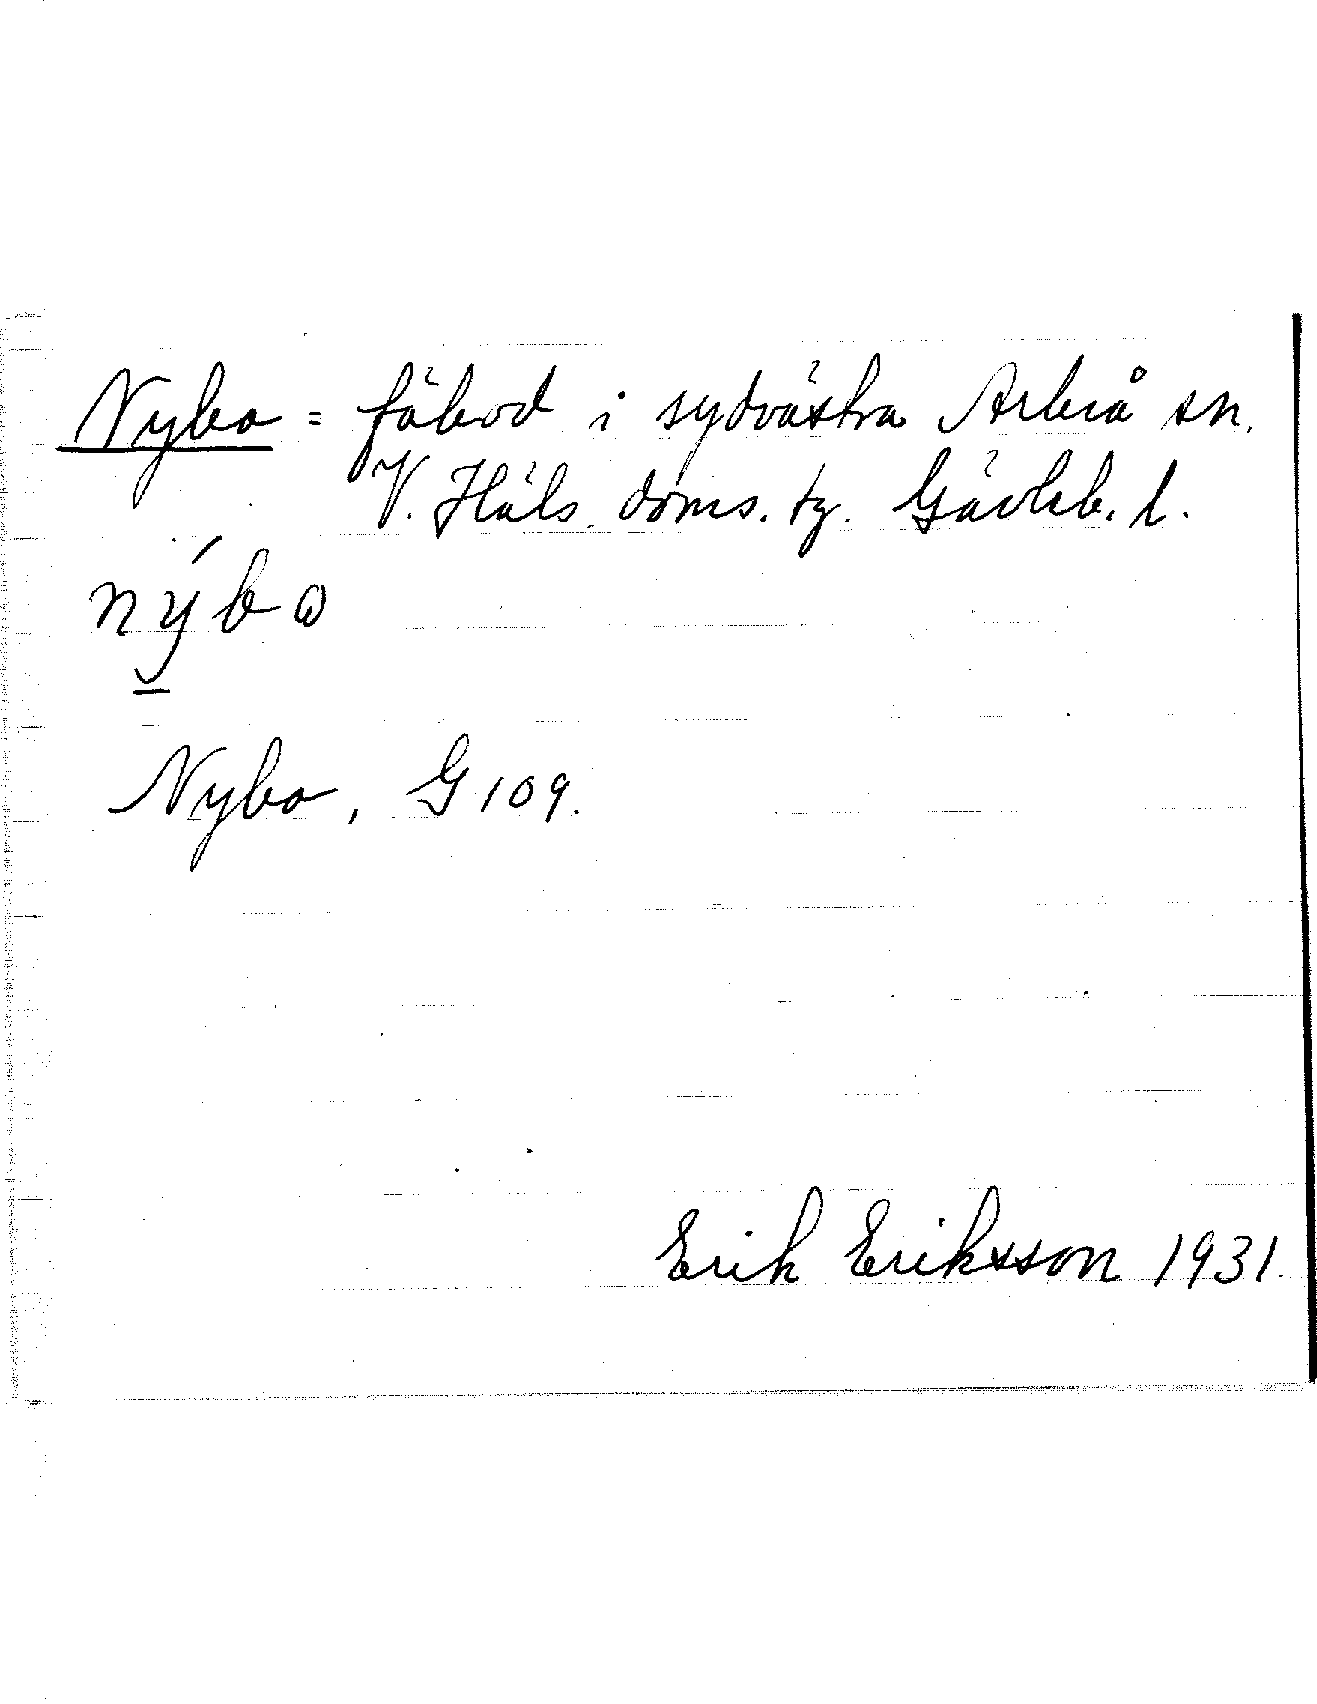 Nybo = fäbod i sydvästra Arbrå sn.
V. Häls. doms. tg. Gävleb. l.
nýbɷ
Nybo, G 109.
Erik Eriksson 1931.